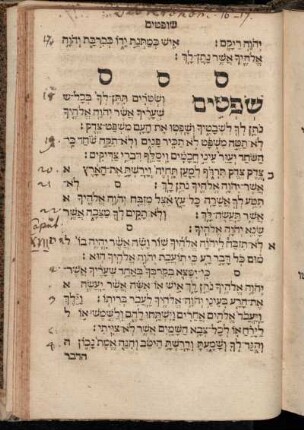 שופטים
יְהוָה רֵיקָם׃ אִישׁ כְּמַתְּנַת יָדוֹ כְּבִרְכַּת יְהוָה
אֱלֹהֶיךָ אֲשֶׁר נָתַן־לָךְ׃
ס ס ס
שֹׁפְטִים וְשֹׁטְרִים תִּתֶּן־לְךָ בְּכָל־שׁ
שְׁעָרֶיךָ אֲשֶׁר יְהוָה אֱלֹהֶיךָ
נֹתֵן לְךָ לִשְׁבָטֶיךָ וְשָׁפְטוּ אֶת הָעָם מִשְׁפַּט־צֶדֶק׃
לֹא תַטֶּה מִשְׁפָּט לֹא תַכִּיר פָּנִים וְלֹא־תִקַּח שֹׁחַד כִּי
הַשֹּׁחַד יְעַוֵּר עֵינֵי חֲכָמִים וִיסַלֵּף דִּבְרֵי צַדִּיקִים׃
כ צֶדֶק צֶדֶק תִּרְדֹּף לְמַעַן תִּחְיֶה וְיָרַשְׁתָּ אֶת־הָאָרֶץ
אֲשֶׁר־יְהוָה אֱלֹהֶיךָ נֹתֵן לָךְ׃ ס לֹא־
תִטַּע לְךָ אֲשֵׁרָה כָּל־עֵץ אֵצֶל מִזְבַּח יְהוָה אֱלֹהֶיךָ
אֲשֶׁר תַּעֲשֶׂה־לָּךְ׃ וְלֹא תָקִים לְךָ מַצֵּבָה אֲשֶׁר
שָׂנֵא יְהוָה אֱלֹהֶיךָ׃ ס
א לֹא־תִזְבַּח לַיהוָה אֱלֹהֶיךָ שׁוֹר וָשֶׂה אֲשֶׁר יִהְיֶה בוֹ
מוּם כֹּל דָּבָר רָע כִּי תוֹעֲבַת יְהוָה אֱלֹהֶיךָ הוּא׃
ס כִּי־יִמָּצֵא בְקִרְבְּךָ בְּאַחַד שְׁעָרֶיךָ אֲשֶׁר־
יְהוָה אֱלֹהֶיךָ נֹתֵן לָךְ אִישׁ אוֹ אִשָּׁה אֲשֶׁר יַעֲשֶׂה
אֶת־הָרַע בְּעֵינֵי יְהוָה־אֱלֹהֶיךָ לַעֲבֹר בְּרִיתוֹ׃ וַיֵּלֶךְ
וַיַּעֲבֹד אֱלֹהִים אֲחֵרִים וַיִּשְׁתַּחוּ לָהֶם וְלַשֶּׁמֶשׁ אוֹ
לַיָּרֵחַ אוֹ לְכָל־צְבָא הַשָּׁמַיִם אֲשֶׁר לֹא־צִוִּיתִי׃
וְהֻגַּד־לְךָ וְשָׁמָעְתָּ וְדָרַשְׁתָּ הֵיטֵב וְהִנֵּה אֱמֶת נָכוֹן
הדבר